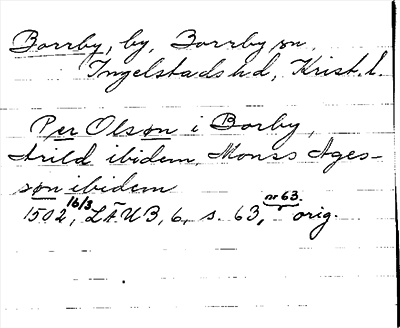 Borrby, by, Borrby sn,
Ingelstads hd, Krist. l.
Per Olsøn i Borby,
Arild ibidem, Monss Ages-
søn ibidem
1502 16/3, LÄUB, 6, s. 63, nr 63. orig.